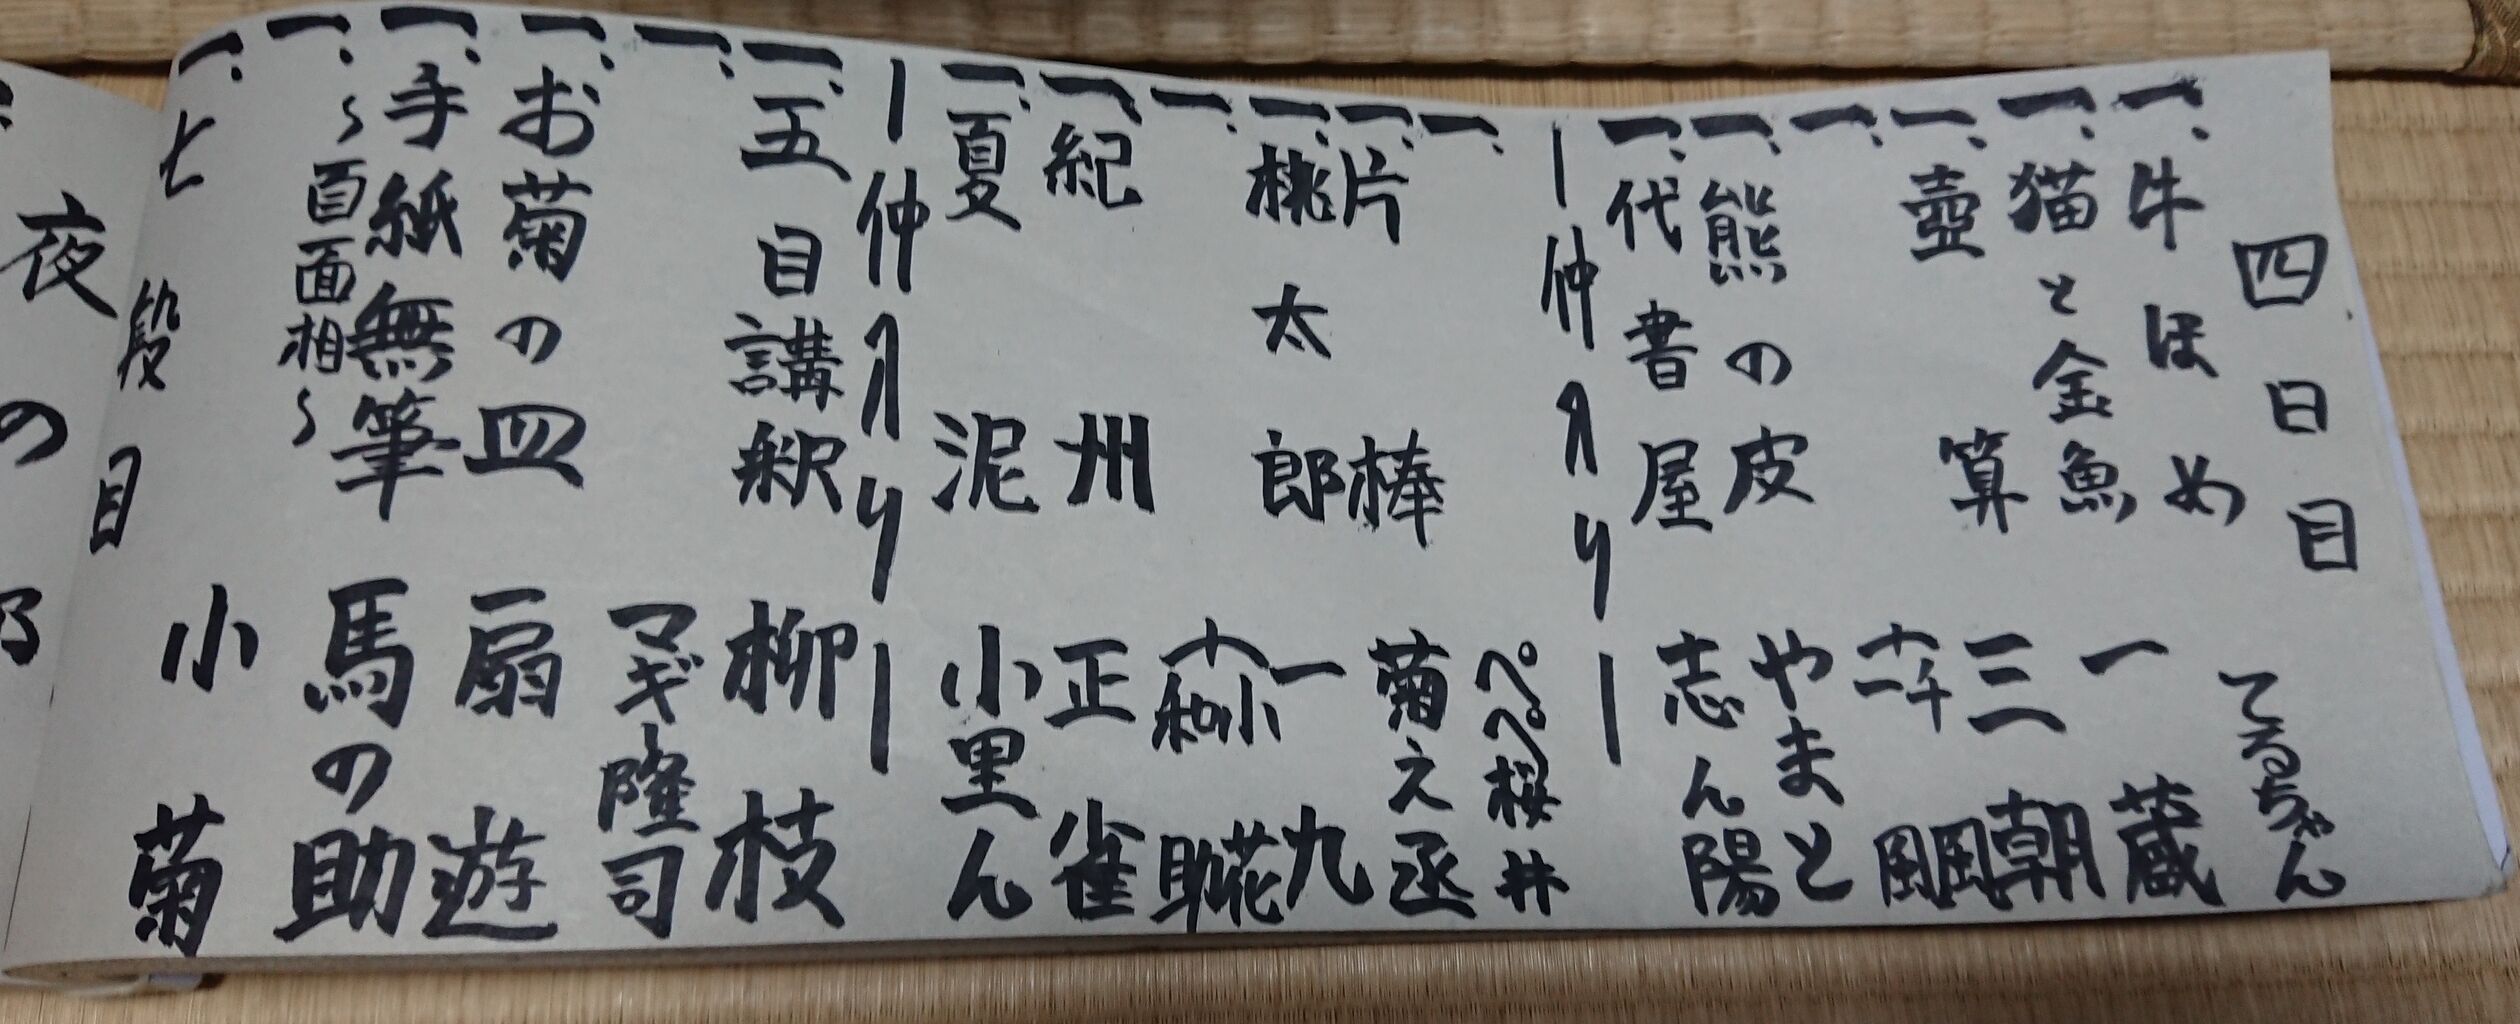 四日目 てるちゃん
一、牛ほめ 一蔵
一、猫と金魚 三朝
一、壺算
一、
一、熊の皮 やまと
一、代書屋 志ん陽
ー仲入りー
一、 ぺぺ桜井
一、片棒 菊え丞
一、桃太郎 一九
一、 小花 和助
一、紀州 正雀
一、夏泥 小里ん
ー仲入りー
一、五目講釈 柳枝
一、 マギー隆司
一、お菊の皿 扇遊
一、手紙無筆 馬の助
一、〜百面相〜
一、七段目 小菊
夜の